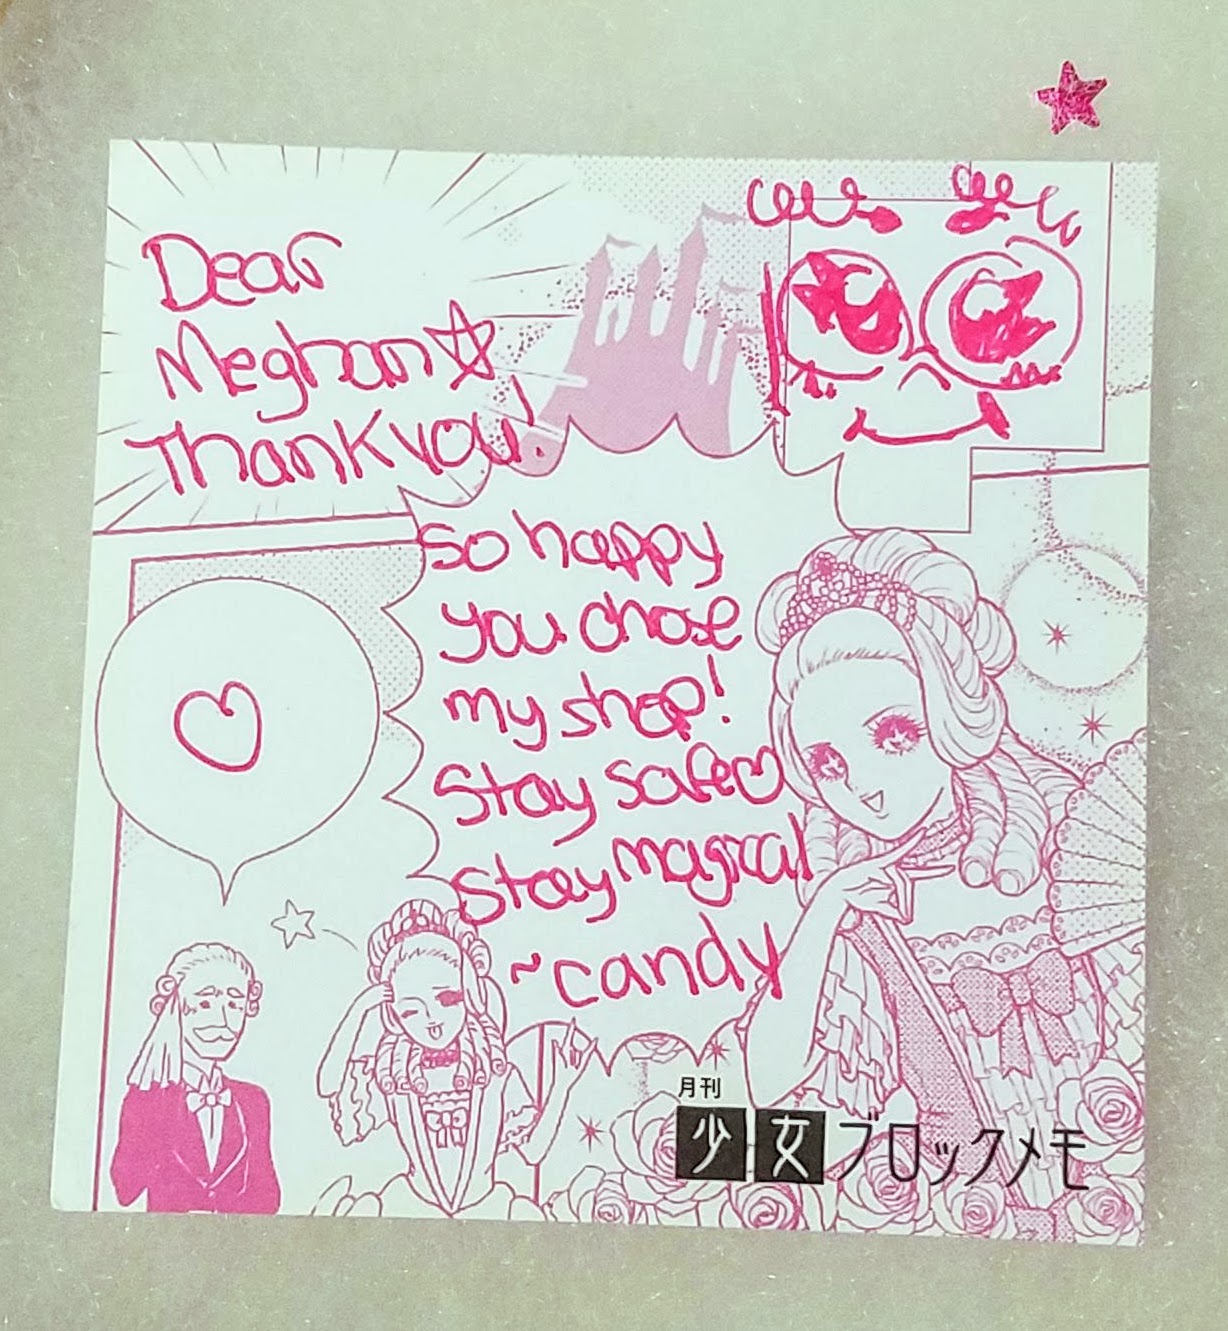 Dear
Meghan
Thank you!
So happy
you chose
my shop!
Stay safe
Stay magical
~candy
月刊
少女ブロックメモ